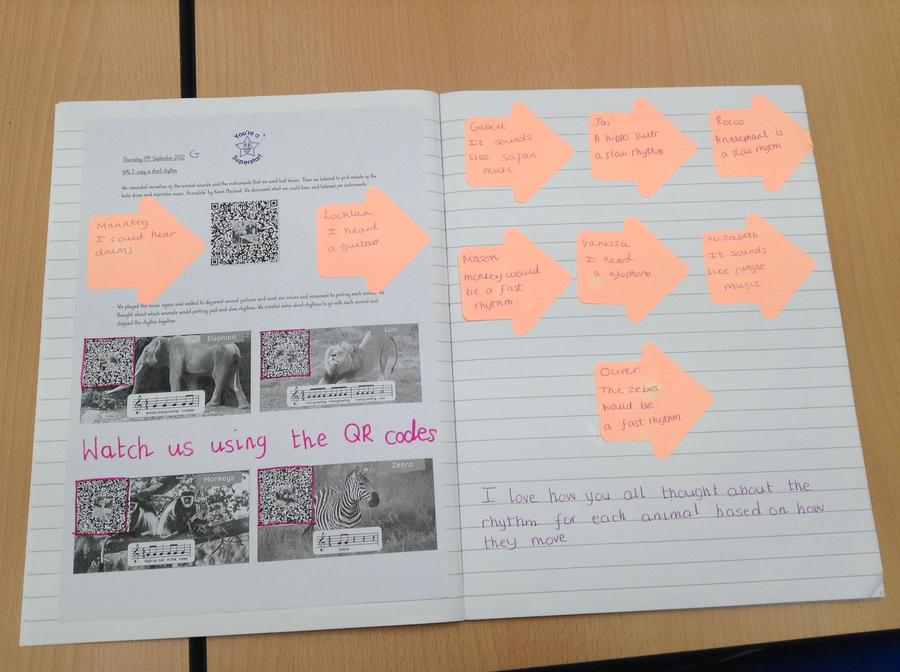 You're a
Superstar!
Thursday 29th September 2022 G
WALT: copy a short rhythm
We recorded ourselves as the animal sounds and the instruments that we used last lesson. Then we listened to first minute of the
Kevin Macleod. We discussed what we could hear and listened
Mannteg
I could hear
drums
Lochlan
I heard
a guitar
We played the music again and walked to different animal pictures and used our voices and movement to portray each animal. We
thought about which animals would portray fast and slow rhythms. We created some short rhythms to go with each animal and
clapped the rhythm together
Elephant
Stomp stomp stomp trumpet
Lion
I am growling I am growling
Watch us using the QR codes
Monkeys
High up sat in the trees
Zebra
Zebra
Gabriel
It sounds
like safari
music
Jai
A hippo suits
a slow rhythm.
Rocco
An elephant is
a slow rhythm.
Mason
monkey would
be a fast
rhythm.
Vanessa
I heard
a xylophone.
Elizabeth
It sounds
like jungle
music
Oliver
The zebra
would be
a fast rhythm
I love how you all thought about the
rhythm for each animal based on how
they move.